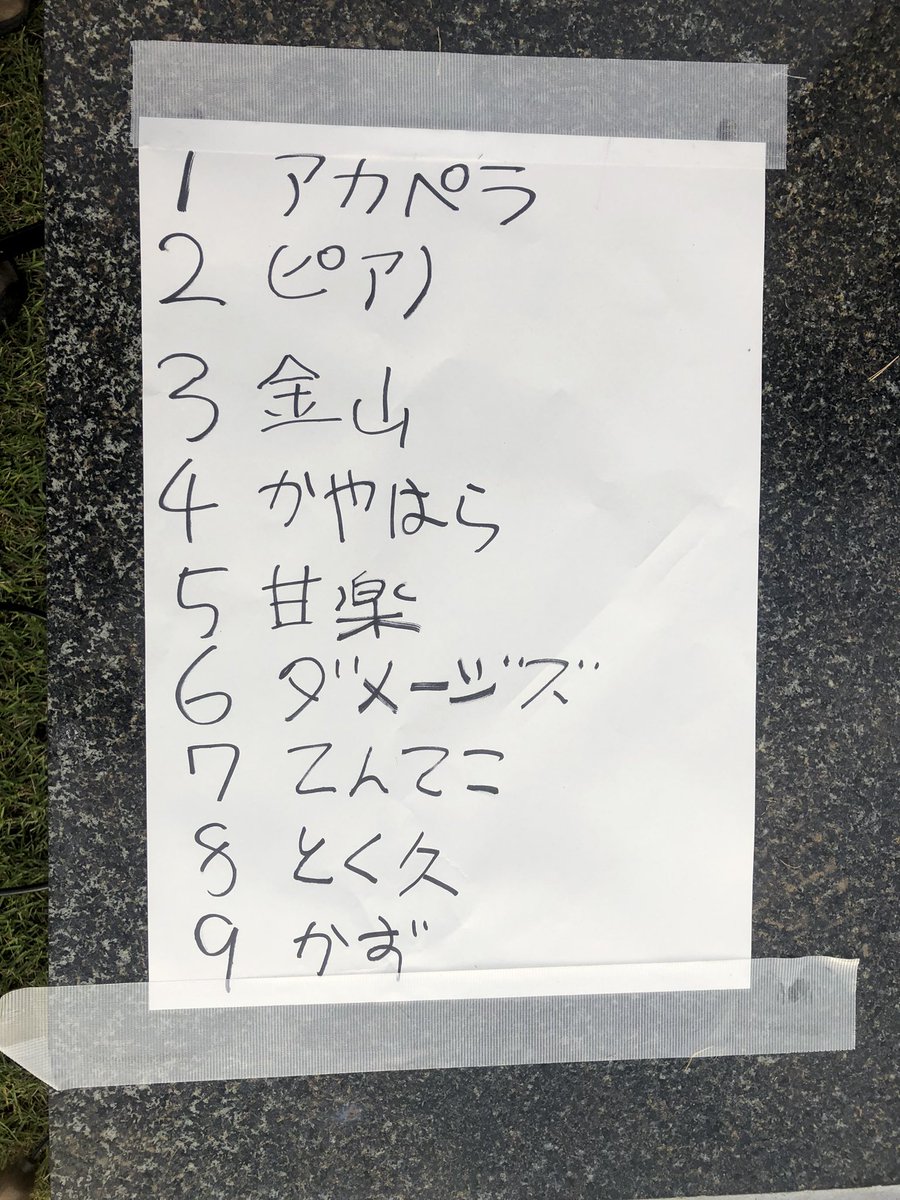 1 アカペラ
2 ピアノ
3 金山
4 かやはら
5 甘楽
6 ダメージズ
7 てんてこ
8 とく久
9 かず